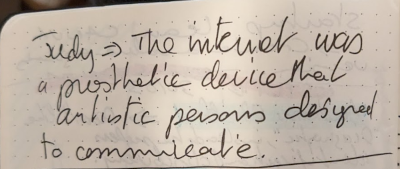 Judy => The internet was
a prosthetic device that
autistic persons designed
to communicate.